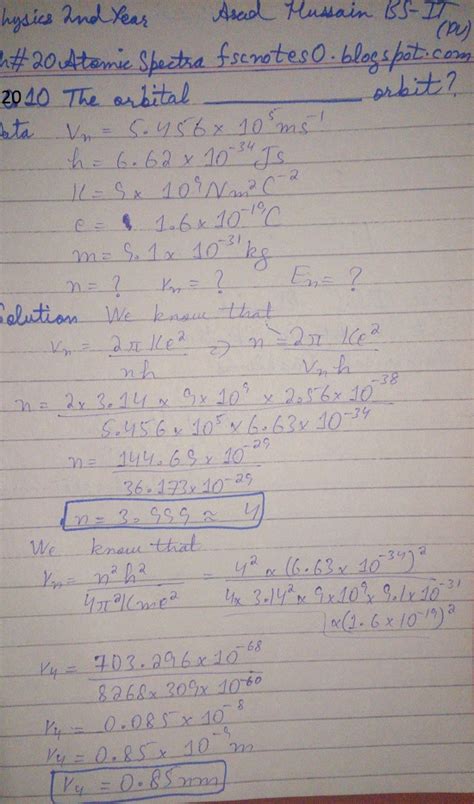 hysics 2nd Year Asad Hussain BS-IT
(PU)
h#20 Atomic Spectra fscnotes0.blogspot.com
2010 The orbital ________ orbit?
ata Vn = 5.456 x 10^5 ms^-1
h = 6.62 x 10^-34 Js
K = 9 x 10^9 Nm^2 C^-2
e = 1.6 x 10^-19 C
m = 9.1 x 10^-31 kg
n = ? rn = ? En = ?
Solution We know that
Vn = 2π Ke^2 / nh => n = 2π Ke^2 / Vn h
n = 2 x 3.14 x 9 x 10^9 x 2.56 x 10^-38 / 5.456 x 10^5 x 6.63 x 10^-34
n = 144.69 x 10^-29 / 36.173 x 10^-29
n = 3.999 ≈ 4
We know that
rn = n^2 h^2 / 4π^2 Kme^2 = 4^2 x (6.63 x 10^-34)^2 / 4 x 3.14^2 x 9 x 10^9 x 9.1 x 10^-31 x (1.6 x 10^-19)^2
r4 = 703.296 x 10^-68 / 8268 x 309 x 10^-60
r4 = 0.085 x 10^-8
r4 = 0.85 x 10^-9 m
r4 = 0.85 nm